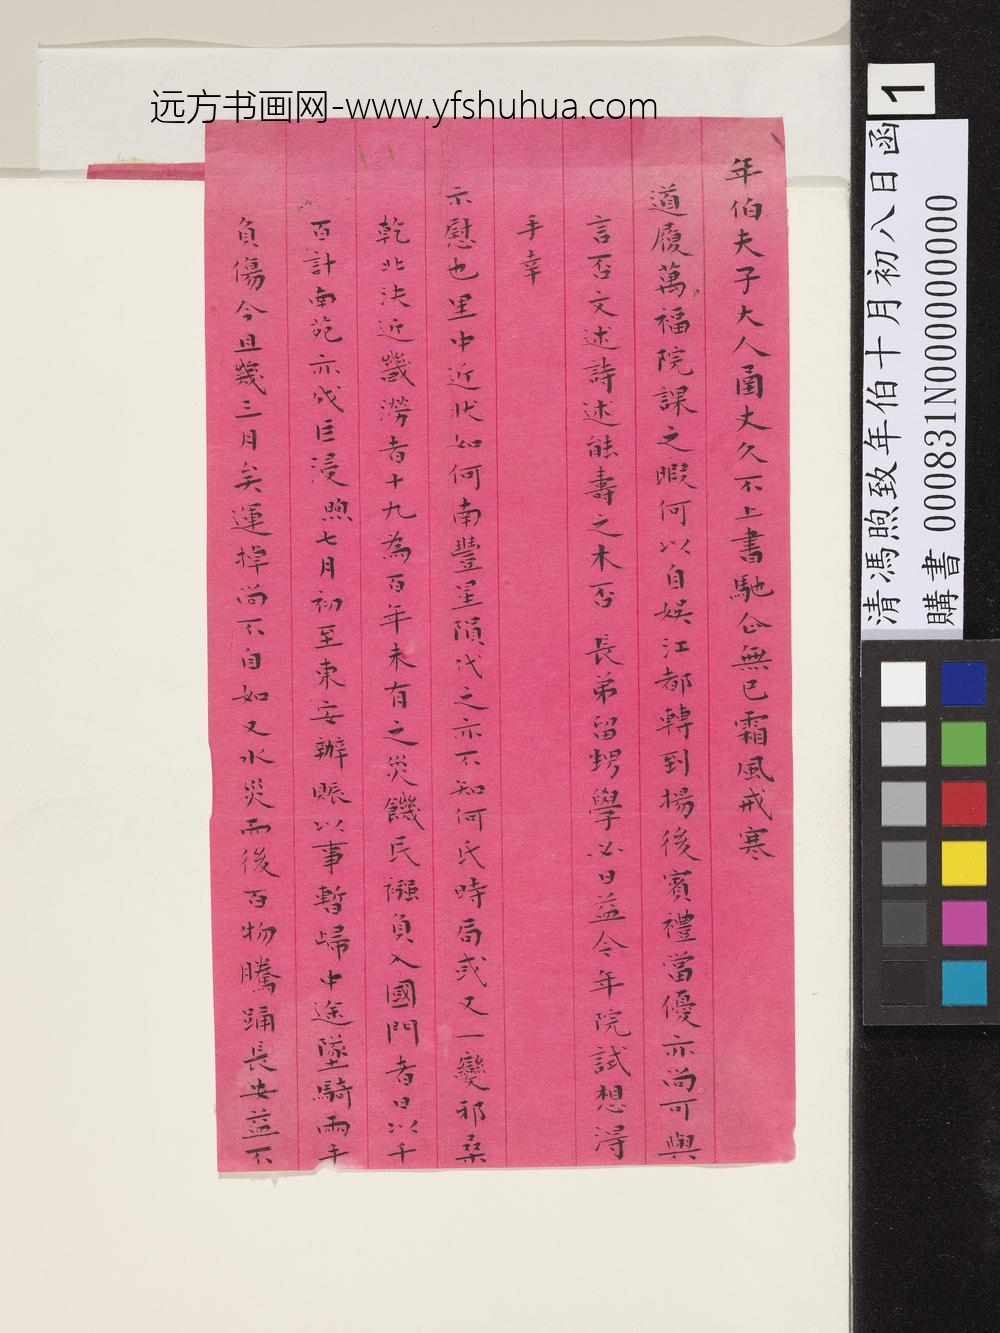 远方书画网-www.yfshuhua.com
年伯夫子大人函丈久不上書馳企無已霜風戒寒
道履萬福院課之暇何以自娱江都轉到揚後賓禮當優亦尚可與
言否文述詩述能壽之木否長弟留甥學必日益今年院試想得
手幸
示慰也里中近狀如何南豐星隕代之亦不知何氏時局或又一變邪桑
乾北決近畿澇者十九為百年未有之災饑民襁負入國門者日以千
百計南苑亦成巨浸煦七月初至東安辦賑以事暫歸中途墜騎兩手
負傷今且幾三月矣運掉尚不自如又水災而後百物騰踊長安益不
1
清馮煦致年伯十月初八日函
購書 000831N000000000